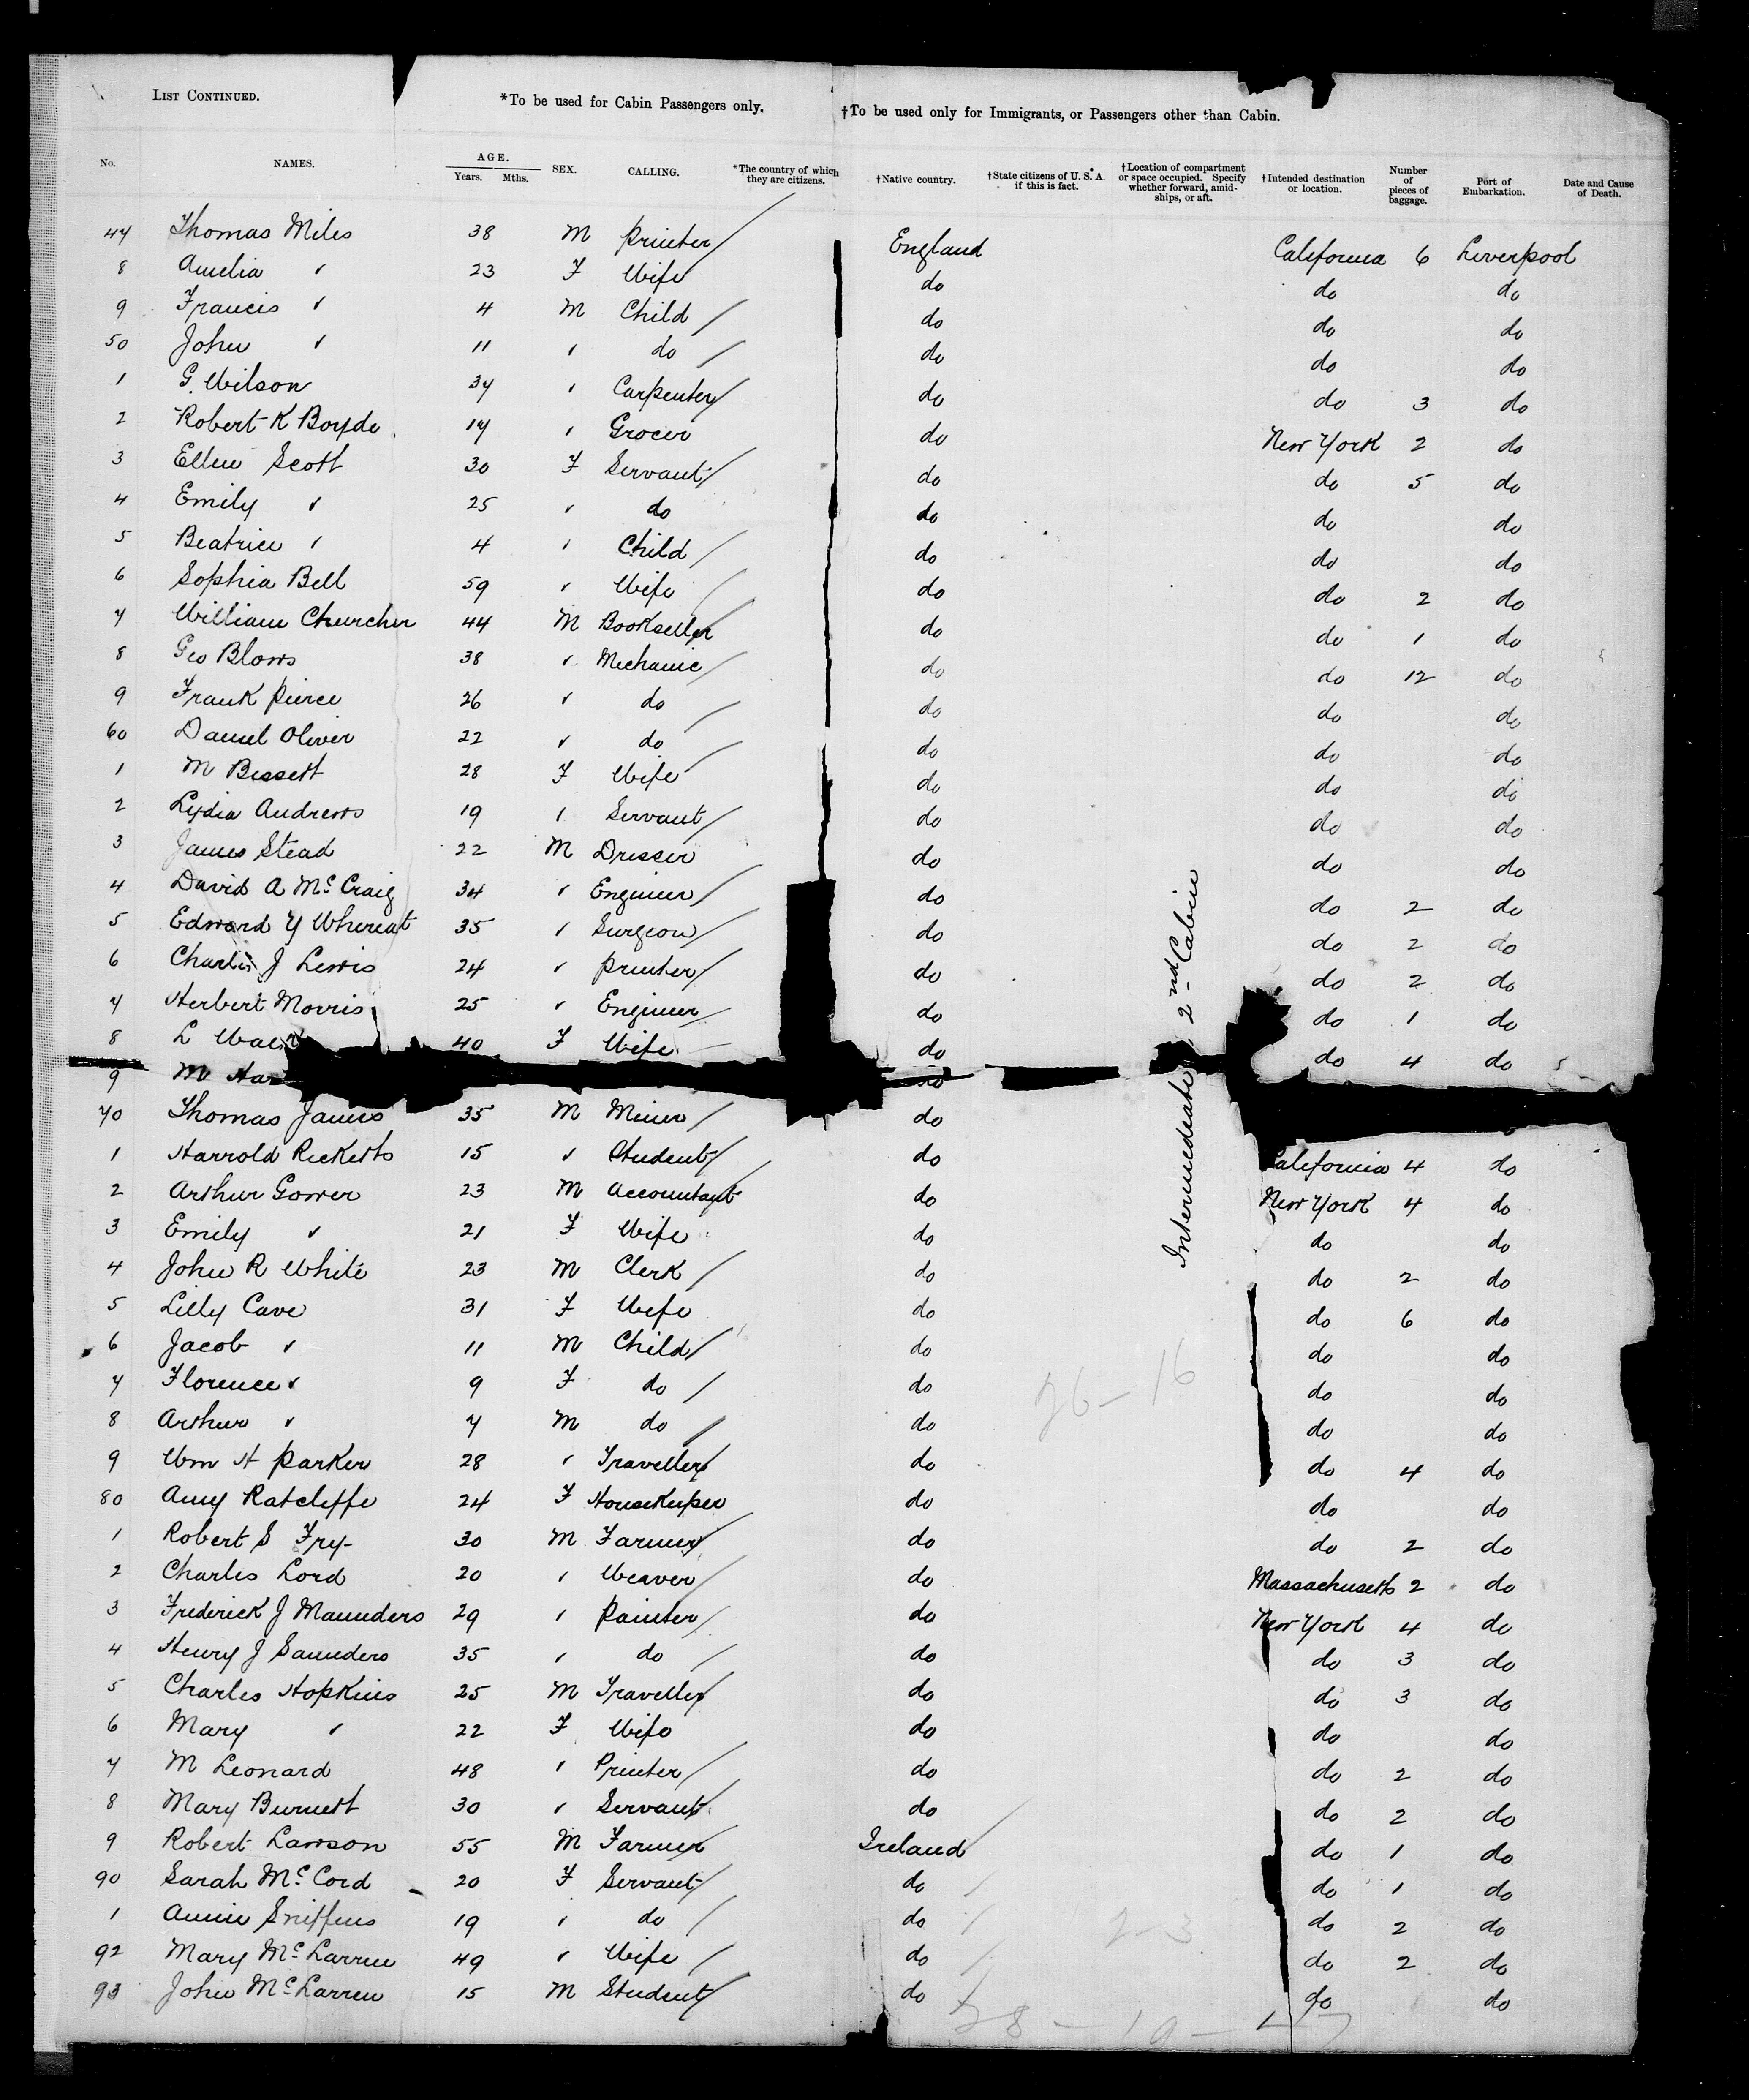 LIST CONTINUED. *To be used for Cabin Passengers only. †To be used only for Immigrants, or Passengers other than Cabin.
No. NAMES. AGE. Years. Mths. SEX. CALLING. *The country of which they are citizens. †Native country. †State citizens of U. S. A. if this is fact. †Location of compartment or space occupied. Specify whether forward, amidships, or aft. †Intended destination or location. Number of pieces of baggage. Port of Embarkation. Date and Cause of Death.
47 Thomas Miles 38 M Printer England California 6 Liverpool
8 Amelia " 23 F Wife do do do
9 Francis " 4 M Child do do do
50 John " 11 " do do do do
1 G. Wilson 37 " Carpenter do do 3 do
2 Robert K Boyde 17 " Grocer do New York 2 do
3 Ellen Scott 30 F Servant do do 5 do
4 Emily " 25 " do do do do
5 Beatrice " 4 " Child do do do
6 Sophia Bell 59 " Wife do do 2 do
7 William Churcher 44 M Bookseller do do 1 do
8 Geo Blows 38 " Mechanic do do 12 do
9 Frank Pierce 26 " do do do do
60 Daniel Oliver 22 " do do do do
1 M Bissett 28 F Wife do do do
2 Lydia Andrews 19 " Servant do do do
3 James Stead 22 M Dresser do do do
4 David A McCraig 34 " Engineer do do 2 do
5 Edward Y Whereat 35 " Surgeon do do 2 do
6 Charles J Lewis 24 " Printer do do 2 do
7 Herbert Morris 25 " Engineer do do 1 do
8 L 40 F Wife do do 4 do
9 M do
70 Thomas James 35 M Miner do
1 Harrold Ricketts 15 " Student do California 4 do
2 Arthur Gower 23 M Accountant do New York 4 do
3 Emily " 21 F Wife do do do
4 John R White 23 M Clerk do do 2 do
5 Lilly Cave 31 F Wife do do 6 do
6 Jacob " 11 M Child do do do
7 Florence " 9 F do do do do
8 Arthur " 7 M do do do do
9 Wm H Parker 28 " Traveller do do 4 do
80 Amy Ratcliffe 24 F Housekeeper do do do
1 Robert S Fry 30 M Farmer do do 2 do
2 Charles Lord 20 " Weaver do Massachusetts 2 do
3 Frederick J Maunders 29 " Painter do New York 4 do
4 Henry J Saunders 35 " do do do 3 do
5 Charles Hopkins 25 M Traveller do do 3 do
6 Mary " 22 F Wife do do do
7 M Leonard 48 " Printer do do 2 do
8 Mary Burnett 30 " Servant do do 2 do
9 Robert Lawson 55 M Farmer Ireland do 1 do
90 Sarah McCord 20 F Servant do do 1 do
1 Annie Sniffens 19 " do do do 2 do
92 Mary McLarren 49 " Wife do do 2 do
93 John McLarren 15 M Student do do do
Intermediate 2nd Cabin
26-16
2-3